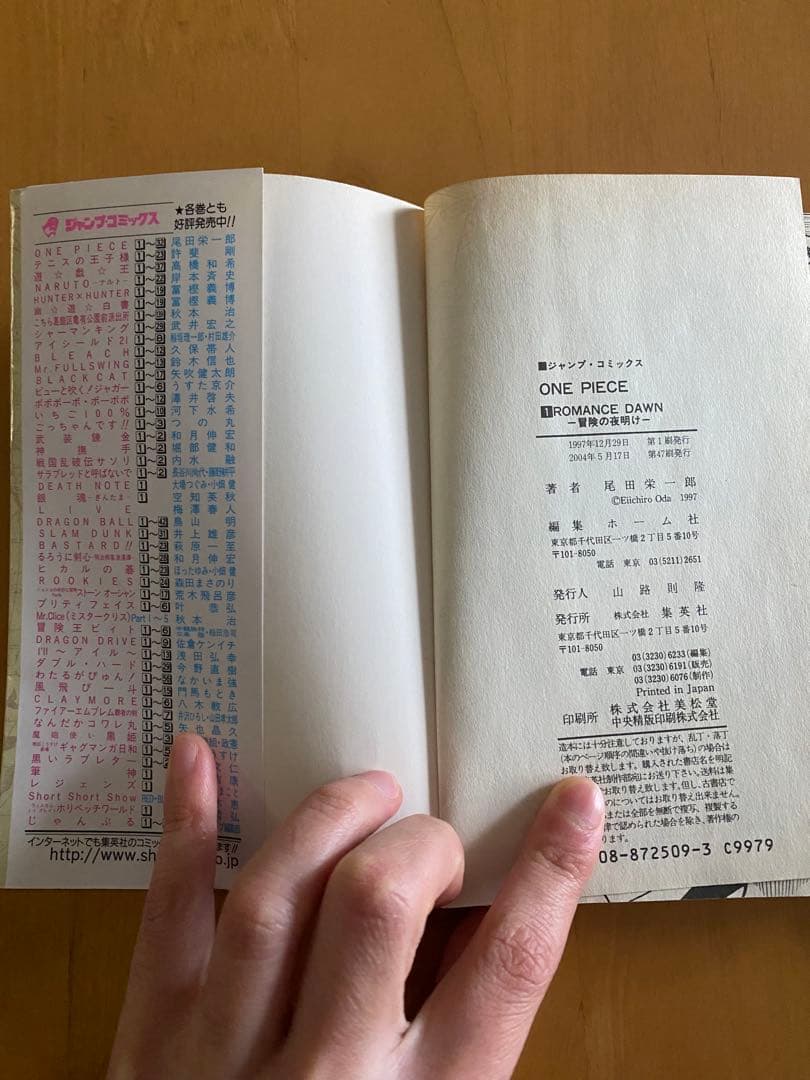 ジャンプ・コミックス
★各巻とも
好評発売中!!
ONE PIECE 1〜33 尾田栄一郎
テニスの王子様 許斐 剛
遊☆戯☆王 高橋和希
NARUTO－ナルト－ 岸本斉史
HUNTER×HUNTER 冨樫義博
幽☆遊☆白書 1〜19 冨樫義博
こちら葛飾区亀有公園前派出所 秋本 治
シャーマンキング 武井宏之
アイシールド21 稲垣理一郎・村田雄介
BLEACH 1〜12 久保帯人
Mr.FULLSWING 1〜13 鈴木信也
BLACK CAT 1〜17 矢吹健太朗
ピューと吹く!ジャガー 1〜6 うすた京介
ボボボーボ・ボーボボ 1〜12 澤井啓夫
いちご100% 1〜10 河下水希
ごっちゃんです!! 1〜3 つの丸
武装錬金 1〜2 和月伸宏
神撫手 1〜2 堀部健和
戦国乱破伝サソリ 1〜2 内水 融
サラブレッドと呼ばないで 1〜2 長谷川尚代・藤野耕平
DEATH NOTE 1 大場つぐみ・小畑 健
銀魂－ぎんたま－ 1 空知英秋
LIVE 1 梅澤春人
DRAGON BALL 1〜42 鳥山 明
SLAM DUNK 1〜31 井上雄彦
BASTARD!! 1〜23 萩原一至
るろうに剣心－明治剣客浪漫譚－ 1〜28 和月伸宏
ヒカルの碁 1〜23 ほったゆみ・小畑 健
ROOKIES 1〜24 森田まさのり
ストーンオーシャン 1〜17 荒木飛呂彦
プリティフェイス 1〜6 叶 恭弘
Mr.Clice(ミスタークリス) Part 1〜5 秋本 治
冒険王ビィト 1〜6 三条陸・稲田浩司
DRAGON DRIVE 1〜9 佐倉ケンイチ
I'll〜アイル〜 1〜13 浅田弘幸
ダブル・ハード 今野直樹
わたるがぴゅん! なかいま強
風飛び一斗 門馬もとき
CLAYMORE 1〜6 八木教広
ファイアーエムブレム覇者の剣 1〜7 井沢ひろし・山田孝太郎
なんだかコワレ丸 1〜5 矢也晶久
魔砲使い黒姫
ギャグマンガ日和
黒いラブレター
筆神
レジェンズ
Short Short Show
ホリベッチワールド
じゃんぷる
インターネットでも集英社のコミック
ます!!
http://www.sh
o.jp
■ジャンプ・コミックス
ONE PIECE
1 ROMANCE DAWN
―冒険の夜明け―
1997年12月29日 第1刷発行
2004年5月17日 第47刷発行
著者 尾田栄一郎
©Eiichiro Oda 1997
編集 ホーム社
東京都千代田区一ツ橋2丁目5番10号
〒101-8050
電話 東京 03(5211)2651
発行人 山路則隆
発行所 株式会社 集英社
東京都千代田区一ツ橋2丁目5番10号
〒101-8050
03(3230)6233(編集)
電話 東京 03(3230)6191(販売)
03(3230)6076(制作)
Printed in Japan
印刷所 株式会社 美松堂
中央精版印刷株式会社
造本には十分注意しておりますが、乱丁・落丁
(本のページ順の間違いや抜け落ち)の場合は
お取り替え致します。購入された書店名を明記
社制作部宛にお送り下さい。送料は集
お取り替え致します。但し、古書店で
のについてはお取り替え出来ません。
または全部を無断で複写、複製する
律で認められた場合を除き、著作権の
ります。
08-872509-3 C9979